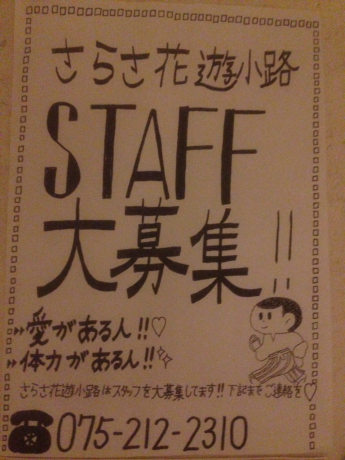 さらさ花遊小路
STAFF
大募集!!
愛がある人!!♡
体力がある人!!
さらさ花遊小路はスタッフを大募集してます!!下記までご連絡を♡
☎075-212-2310